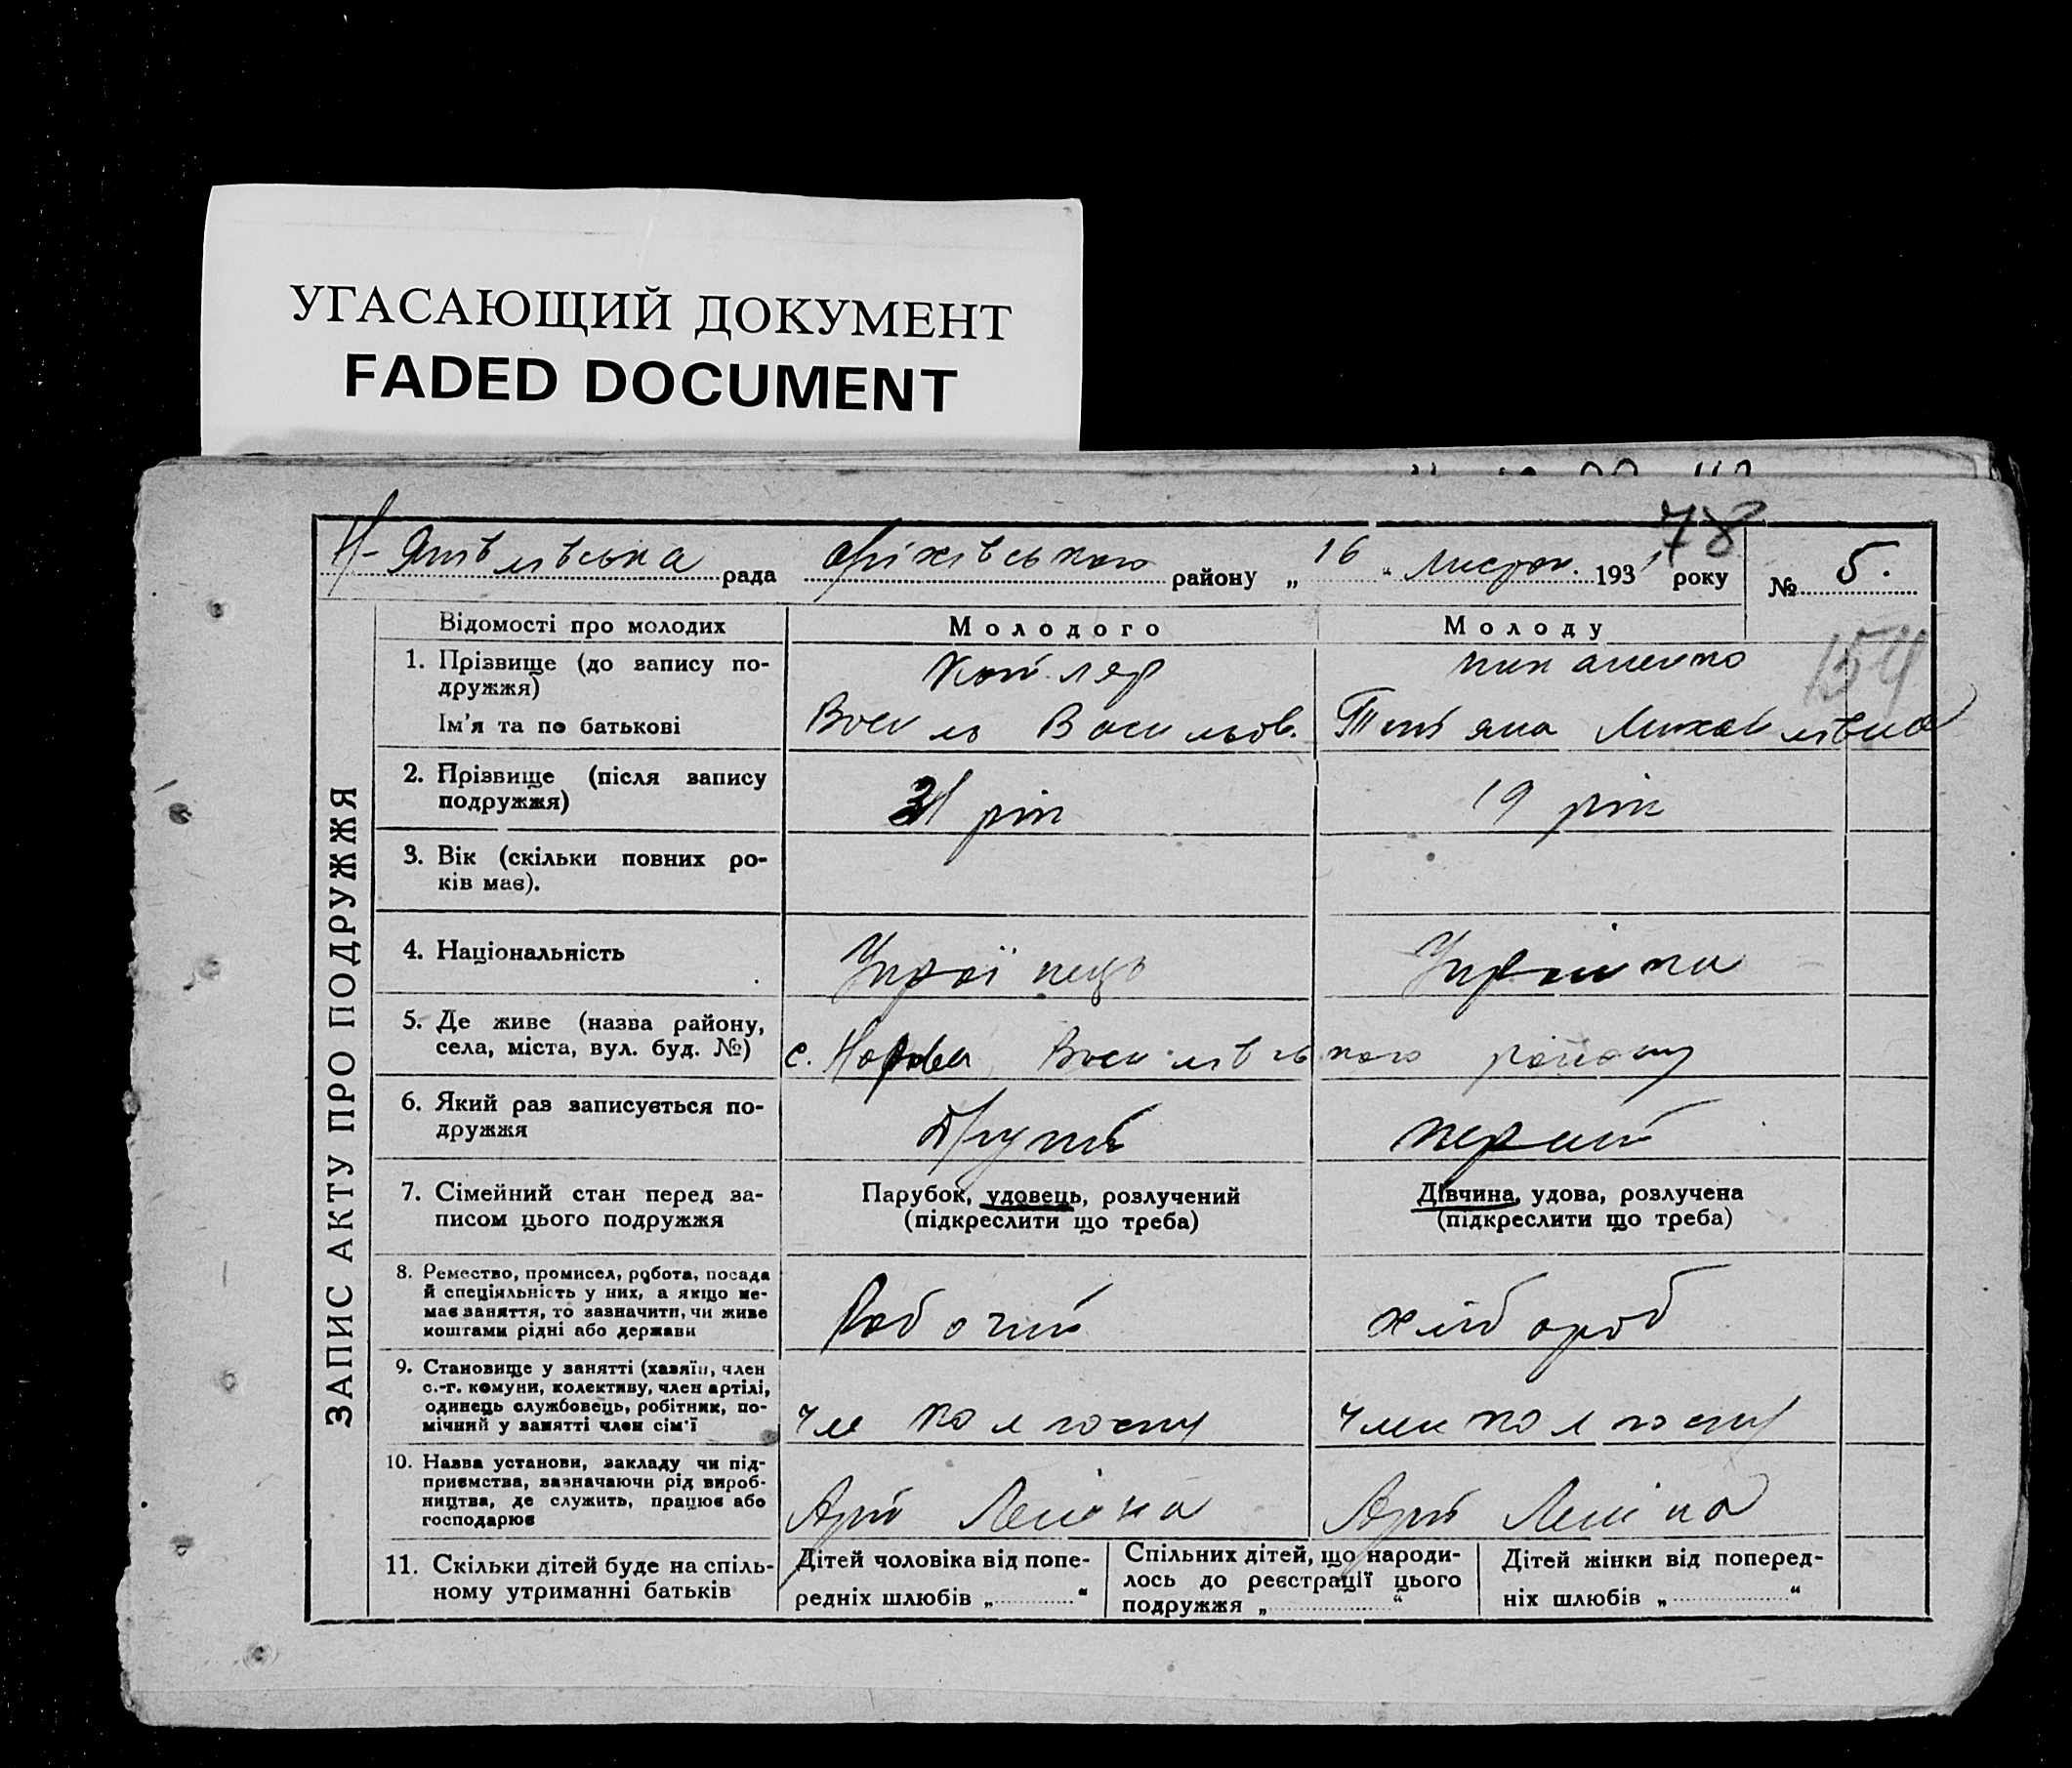 УГАСАЮЩИЙ ДОКУМЕНТ
FADED DOCUMENT
78
рада району „16“ Листоп. 1931 року № 5.
154
ЗАПИС АКТУ ПРО ПОДРУЖЖЯ
Відомості про молодих Молодого Молоду
1. Прізвище (до запису по-
дружжя)
Ім'я та по батькові
Василь Васильов. Тетяна Михайлівна
2. Прізвище (після запису
подружжя)
рік 19 рік
3. Вік (скільки повних ро-
ків має).
4. Національність
Українець Українка
5. Де живе (назва району,
села, міста, вул. буд. №)
с. Василівського району
6. Який рав записується по-
дружжя
Другий перший
7. Сімейний стан перед за-
писом цього подружжя
Парубок, удовець, розлучений
(підкреслити що треба)
Дівчина, удова, розлучена
(підкреслити що треба)
8. Ремество, промисел, робота, посада
й спеціяльність у них, а якщо не-
має заняття, то зазначити, чи живе
коштами рідні або держави
Робочий хлібороб
9. Становище у занятті (хазяїн, член
с.-г. комуни, колективу, член артілі,
одинець службовець, робітник, по-
мічний у занятті член сім'ї
чле колгоспу член колгоспу
10. Назва установи, закладу чи під-
приємства, зазначаючи рід вироб-
ництва, де служить, працює або
господарює
Арт Леніна Арт Леніна
11. Скільки дітей буде на спіль-
ному утриманні батьків
Дітей чоловіка від попе-
редніх шлюбів „ “
Спільних дітей, що народи-
лось до реєстрації цього
подружжя „ “
Дітей жінки від поперед-
ніх шлюбів „ “